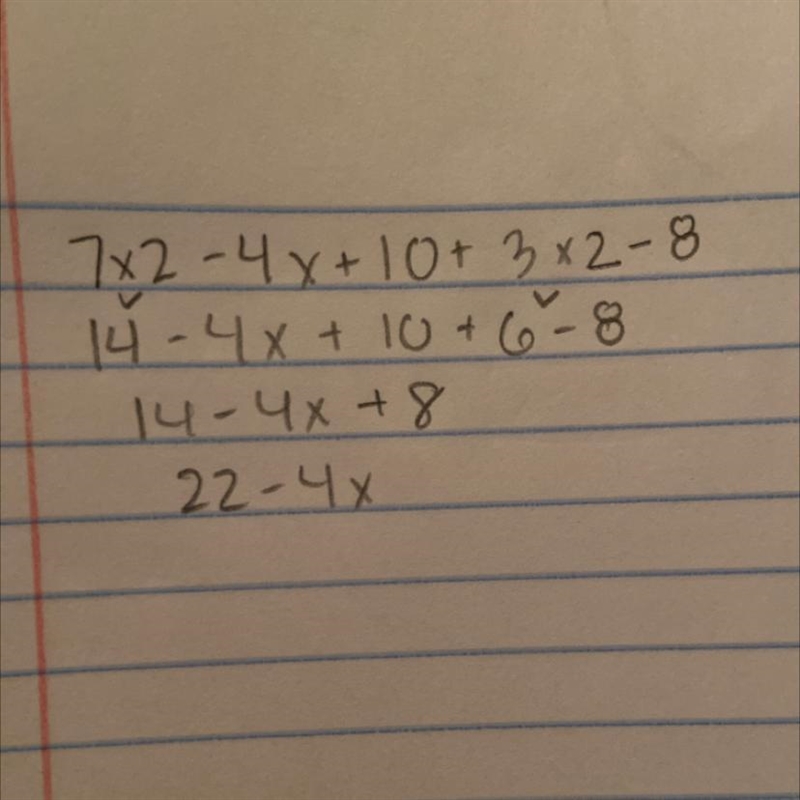 7x2 - 4x + 10 + 3x2 - 8
14 - 4x + 10 + 6 - 8
14 - 4x + 8
22 - 4x